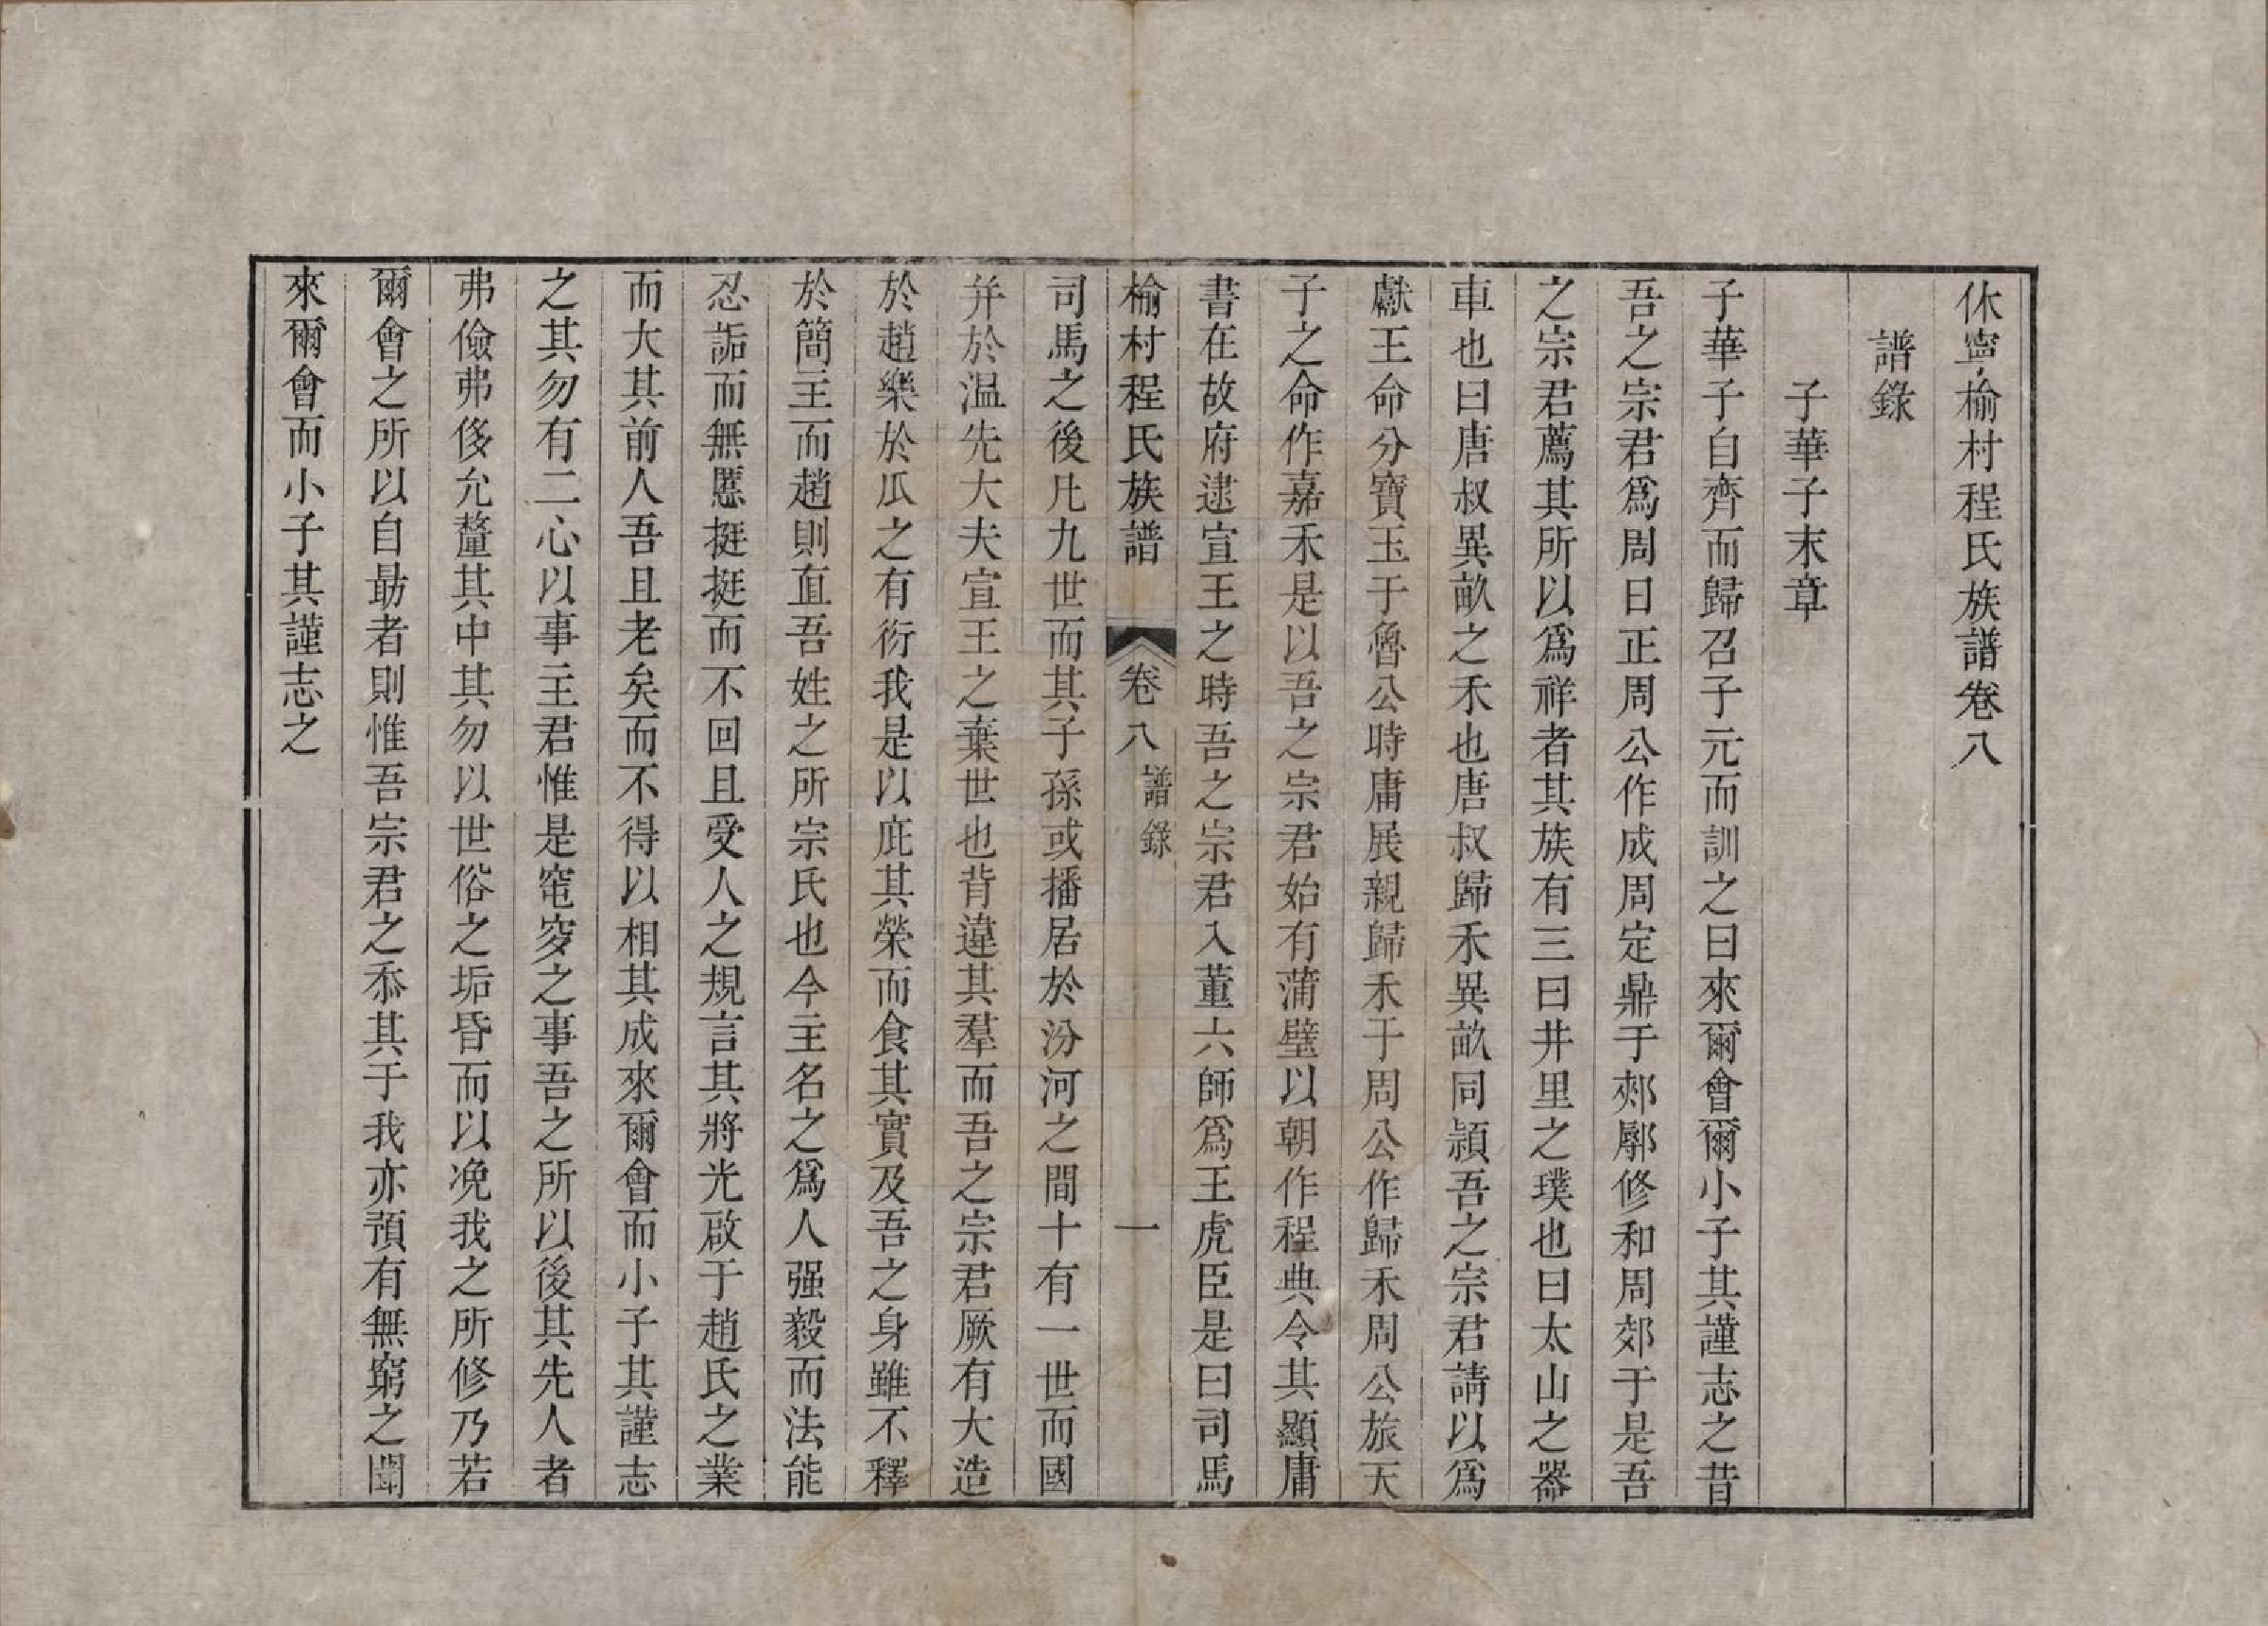 休寧榆村程氏族譜卷八
譜錄
子華子末章
子華子自齊而歸召子元而訓之曰來爾會爾小子其謹志之昔
吾之宗君爲周日正周公作成周定鼎于郟鄏修和周郊于是吾
之宗君薦其所以爲祥者其族有三曰井里之璞也曰太山之器
車也曰唐叔異畝之禾也唐叔歸禾異畝同頴吾之宗君請以爲
獻王命分寶玉于魯公時庸展親歸禾于周公作歸禾周公旅天
子之命作嘉禾是以吾之宗君始有蒲璧以朝作程典令其顯庸
書在故府逮宣王之時吾之宗君入董六師爲王虎臣是曰司馬
榆村程氏族譜 卷八 譜錄 一
司馬之後凡九世而其子孫或播居於汾河之間十有一世而國
并於温先大夫宣王之棄世也背違其羣而吾之宗君厥有大造
於趙樂於瓜之有衍我是以庇其榮而食其實及吾之身雖不釋
於簡主而趙則直吾姓之所宗氏也今主名之爲人强毅而法能
忍詬而無慝挺挺而不回且受人之規言其將光啟于趙氏之業
而大其前人吾且老矣而不得以相其成來爾會而小子其謹志
之其勿有二心以事主君惟是窀穸之事吾之所以後其先人者
弗儉弗侈允釐其中其勿以世俗之垢昏而以凂我之所修乃若
爾會之所以自勗者則惟吾宗君之忝其于我亦預有無窮之聞
來爾會而小子其謹志之